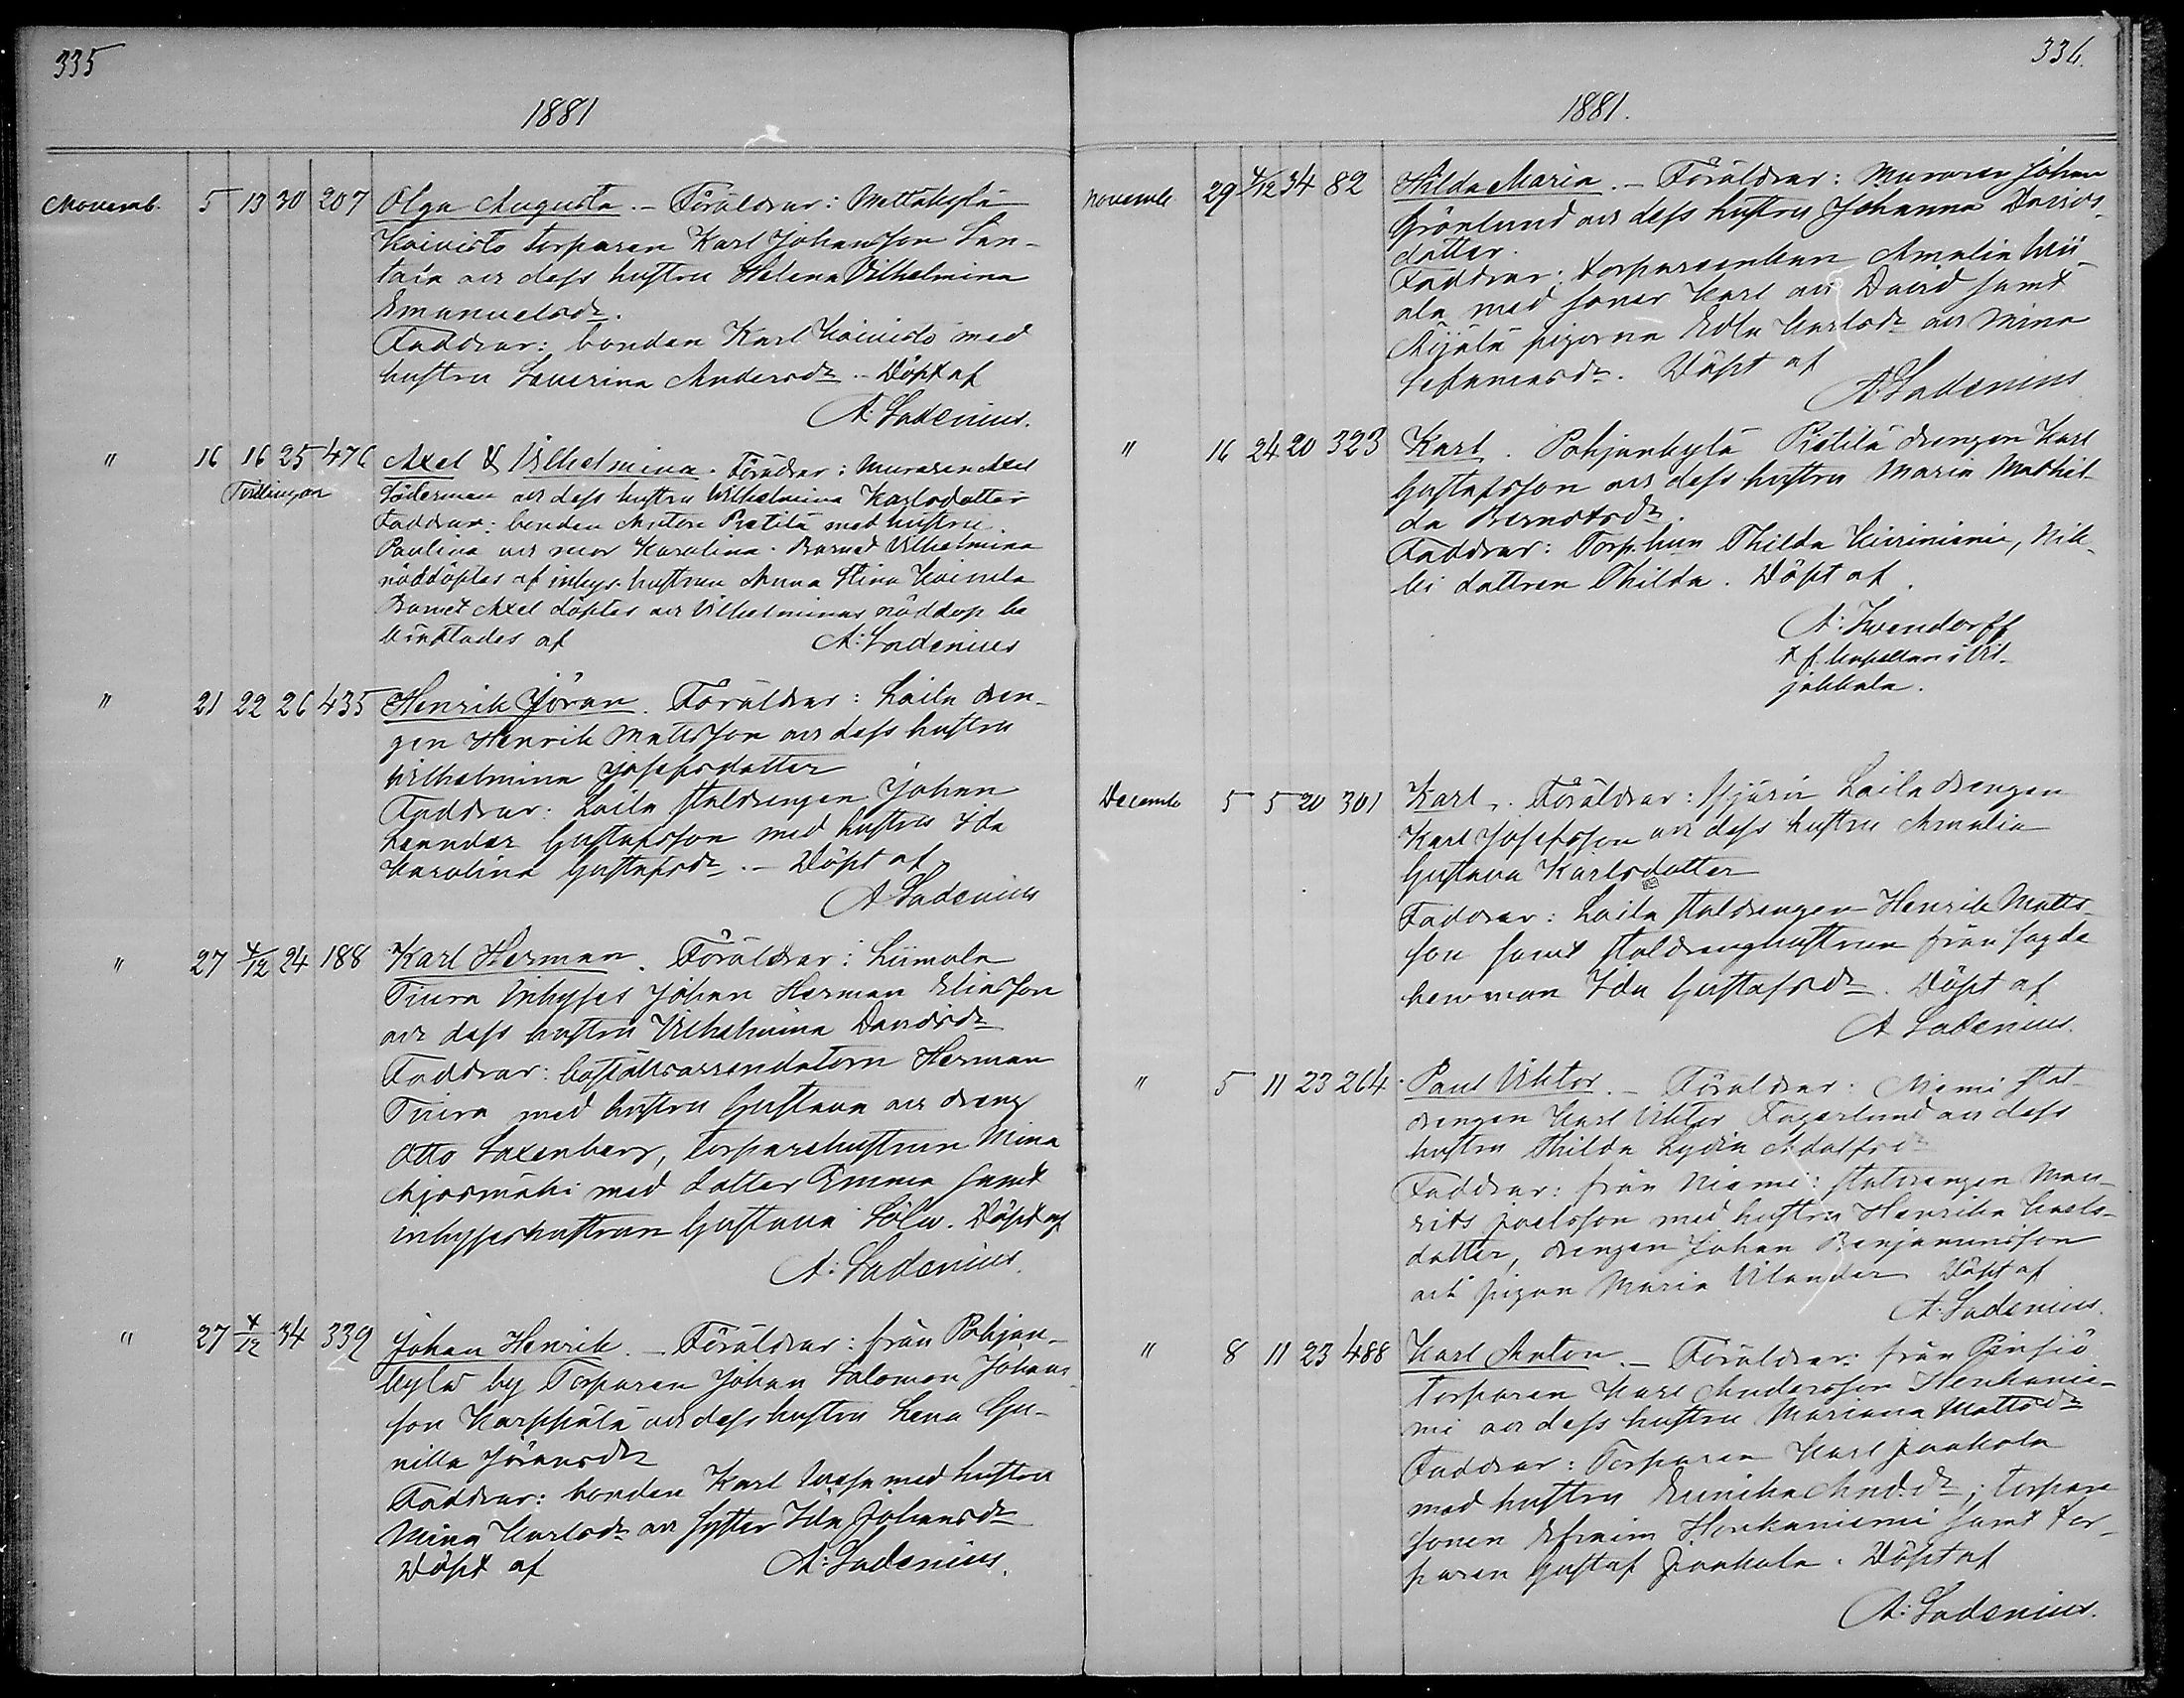 335
1881
Novemb. 5 13 30 207 Olga Augusta. – Föräldrar: Mettäkylä
Koivisto torparen Karl Johansson San-
tala och dess hustru Helena Vilhelmina
Emanuelsdr.
Faddrar: bonden Karl Koivisto med
hustru Severina Andersdr. – Döpt af
A: Ladenius.
" 16 16 25 476 Axel & Vilhelmina. Föräldrar: Muraren Axel
Tvillingar
Söderman och dess hustru Vilhelmina Karlsdotter
Faddrar: bonden Anton Pietilä med hustru
Paulina och mor Karolina. Barnet Vilhelmina
nöddöptes af inhys. hustrun Anna Stina Koivula
Barnet Axel döptes och Vilhelminas nöddop be
kräftades af A: Ladenius
" 21 22 26 435 Henrik Jöran. Föräldrar: Laila dren-
gen Henrik Mattsson och dess hustru
Vilhelmina Josefsdotter
Faddrar: Laila staldrengen Johan
Leander Gustafsson med hustru Ida
Karolina Gustafsdr. – Döpt af
A Ladenius
" 27 4/12 24 188 Karl Herman. Föräldrar: Liimola
Tiura Inhyses Johan Herman Eliasson
och dess hustru Vilhelmina Davidsdr
Faddrar: boställsarrendatorn Herman
Tiura med hustru Gustava och dreng
Otto Saxenberg, torparehustrun Mina
Myösmäki med dotter Emma samt
inhyseshustrun Gustava Sölw. Döpt af
A: Ladenius.
" 27 4/12 34 339 Johan Henrik. – Föräldrar: från Pohjan-
kylä by Torparen Johan Salomon Johans-
son Karppälä och dess hustru Lena Gu-
nilla Jöransdr
Faddrar: bonden Karl Uusipa med hustru
Mina Karlsdr och syster Ida Johansdr
Döpt af A: Ladenius.
336.
1881.
Novemb 29 4/12 34 82 Hilda Maria. – Föräldrar: Muraren Johan
Grönlund och dess hustru Johanna Davids-
dotter.
Faddrar: torpareenkan Amalia
ala med soner Karl och David samt
Äijälä pigorna Edla Karlsdr och Mina
Stefanusdr. Döpt af
A Ladenius
" 16 24 20 323 Karl. Pohjankylä Pietilä drengen Karl
Gustafsson och dess hustru Maria Mathil-
da Berndtsdr.
Faddrar: Torp.hun Thilda Kiviniemi, Nik-
ki dottren Thilda. Döpt af
A: Iwendorff
t f. kapellan i Vil-
jakkala.
Decemb 5 5 20 301 Karl. Föräldrar: Kyrö Laila drengen
Karl Josefsson och dess hustru Amalia
Gustava Karlsdotter
Faddrar: Laila staldrengen Henrik Matts-
son samt staldrenghustrun från sagde
hemman Ida Gustafsdr. Döpt af
A Ladenius.
" 5 11 23 264 Paul Viktor. – Föräldrar: Niemi stat
drengen Karl Viktor Fagerlund och dess
hustru Thilda Lydia Adolfsdr
Faddrar: från Niemi: statdrengen Mau-
rits Joelsson med hustru Henrika Karls-
dotter, drengen Johan Benjaminsson
och pigan Maria Vilander Döpt af
A: Ladenius.
" 8 11 23 488 Karl Anton. – Föräldrar: från Pinsiö
Torparen Karl Andersson Honkanie-
mi och dess hustru Mariana Mattsdr
Faddrar: Torparen Karl Jaakola
med hustru Eerika And.dr; torpare
sonen Efraim Honkaniemi samt tor-
paren Gustaf Jaakola. Döpt af
A: Ladenius.